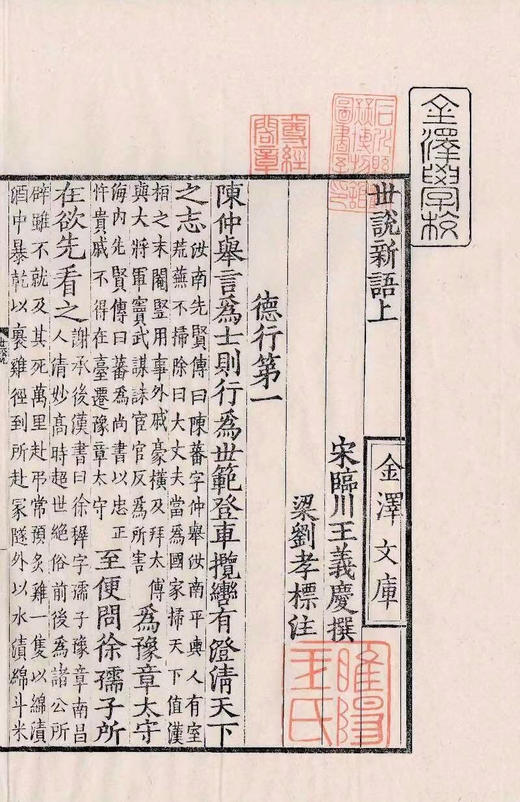 金澤學校
尊經閣章
世說新語上
金澤文庫
宋臨川王義慶撰
梁劉孝標注
睢陽王氏
德行第一
陳仲舉言爲士則行爲世範登車攬轡有澄淸天下
之志汝南先賢傳曰陳蕃字仲舉汝南平輿人有室荒蕪不掃除曰大丈夫當爲國家掃天下值漢
桓之末閹豎用事外戚豪橫及拜太傅與大將軍竇武謀誅宦官反爲所害爲豫章太守
海內先賢傳曰蕃爲尚書以忠正忤貴戚不得在臺遷豫章太守至便問徐孺子所
在欲先看之謝承後漢書曰徐穉字孺子豫章南昌人淸妙髙時超世絕俗前後爲諸公所
辟雖不就及其死萬里赴弔常預炙雞一隻以綿漬酒中暴乾以裹雞徑到所赴冢隧外以水漬綿斗米